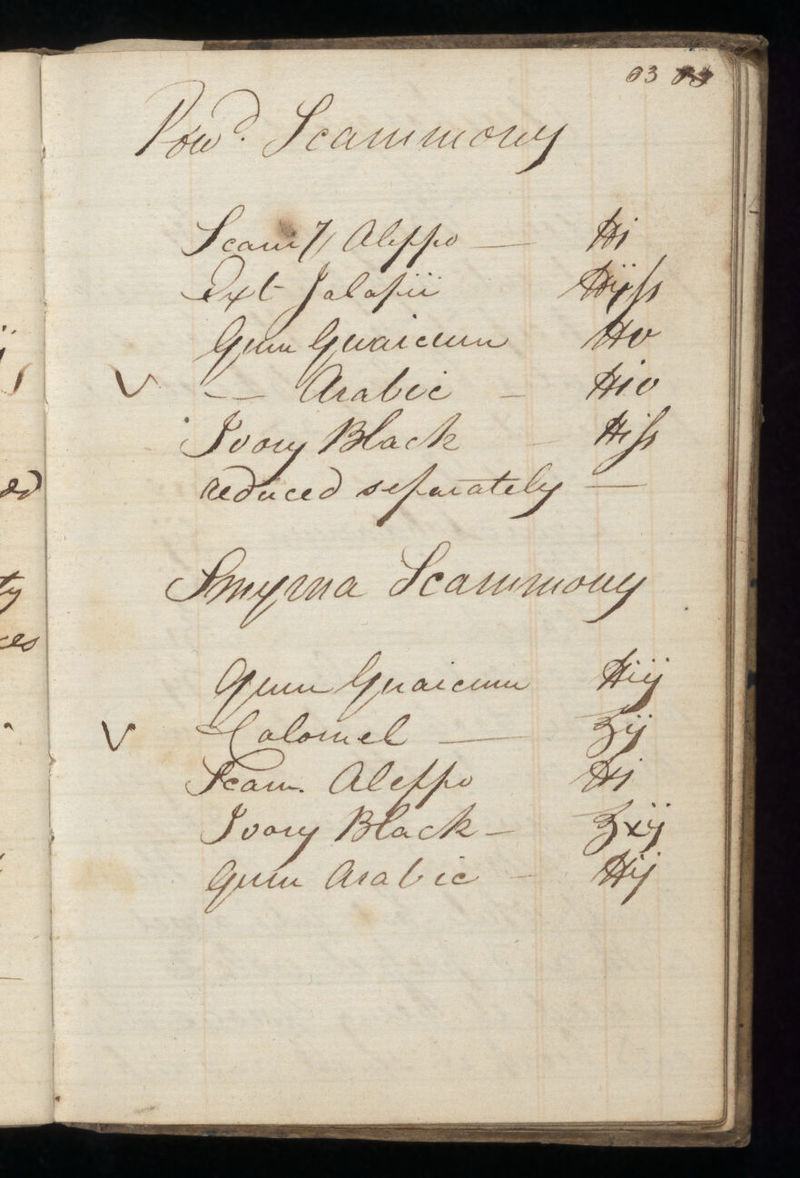 83
Powd. Scammony
Scam7/ Aleppo — ℔i
Ext Jalapii ℔ijſs
Gum Guaicum ℔v
— Arabic — ℔iv
Ivory Black — ℔iſs
reduced separately —
Smyrna Scammony
Gum Guaicum ℔iij
Calomel — ℥ij
Scam. Aleppo ℔i
Ivory Black — ℥xij
Gum Arabic — ℔ij